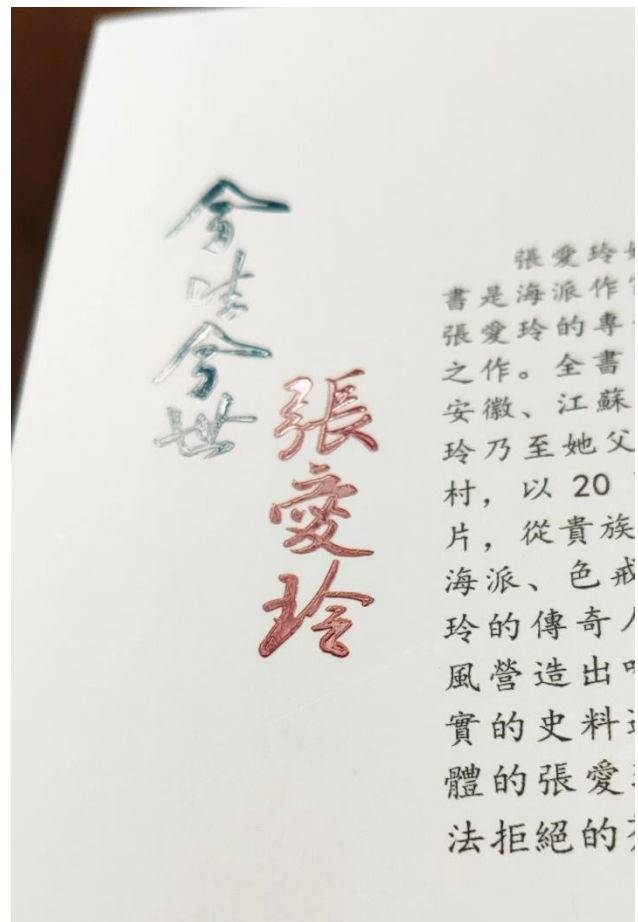 今世
張愛玲
張愛玲
書是海派作家
張愛玲的專
之作。全書
安徽、江蘇
玲乃至她父
村，以 20
片，從貴族
海派、色戒
玲的傳奇人
風營造出
實的史料
體的張愛
法拒絕的